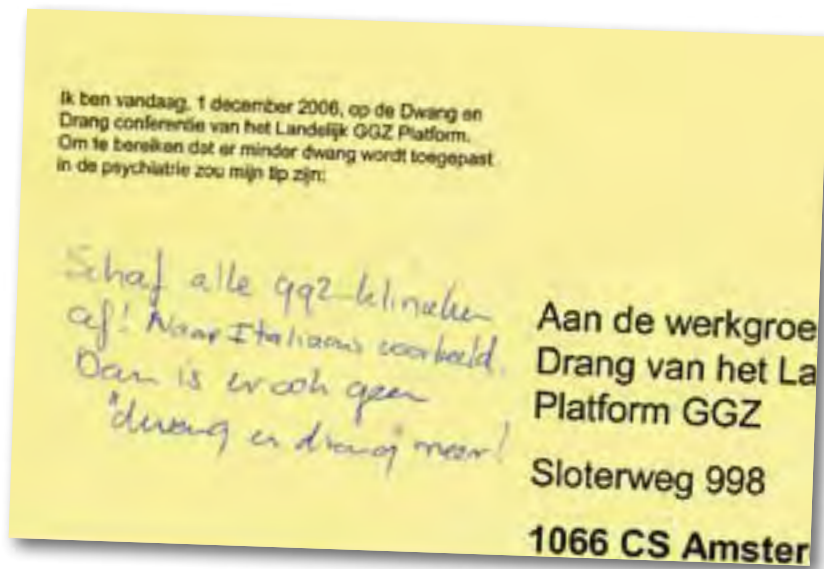 Ik ben vandaag, 1 december 2006, op de Dwang en
Drang conferentie van het Landelijk GGZ Platform.
Om te bereiken dat er minder dwang wordt toegepast
in de psychiatrie zou mijn tip zijn:
Schaf alle ggz-klinieken
af! Naar Italiaans voorbeeld.
Dan is er ook geen
"dwang en drang" meer!
Aan de werkgroe
Drang van het La
Platform GGZ
Sloterweg 998
1066 CS Amster